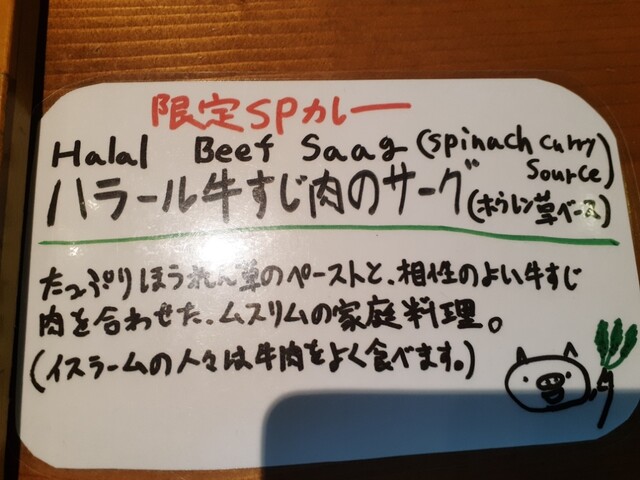 限定SPカレー
Halal Beef Saag (spinach curry
source)
ハラール牛すじ肉のサーグ(ホウレン草ベース)
たっぷりほうれん草のペーストと、相性のよい牛すじ
肉を合わせた、ムスリムの家庭料理。
(イスラームの人々は牛肉をよく食べます。)